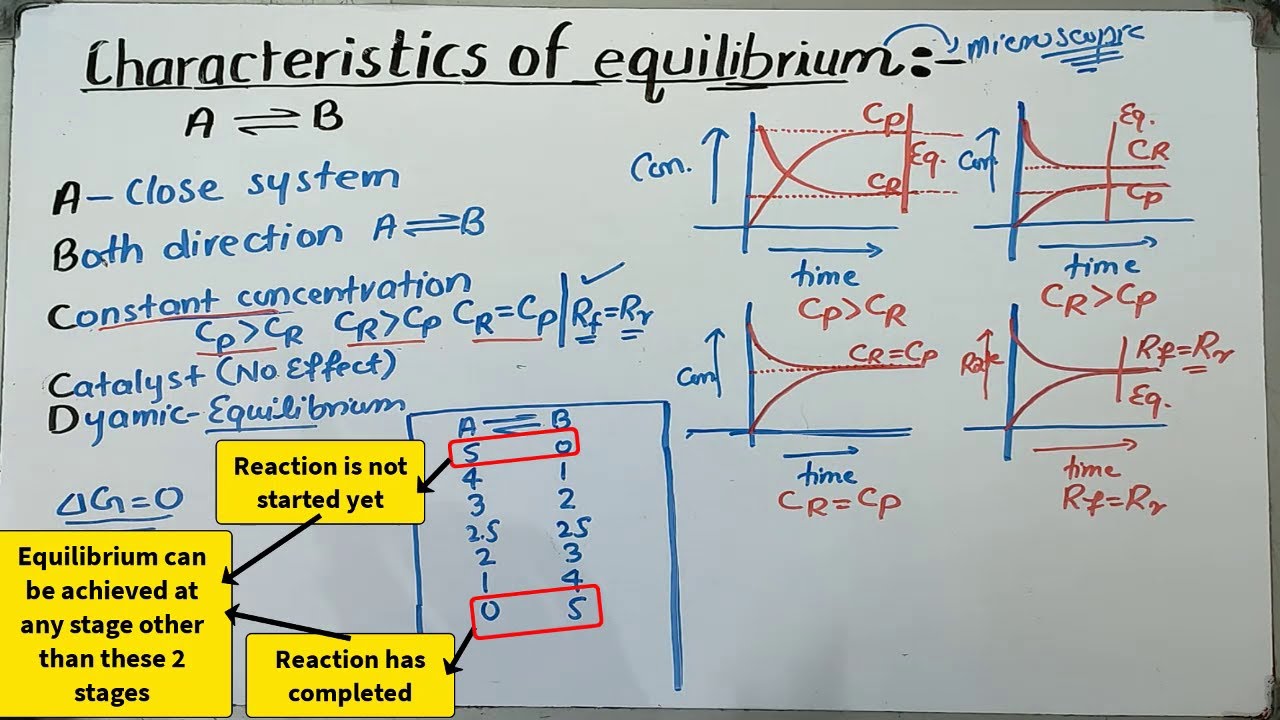 Characteristics of equilibrium:- microscopic
A ⇌ B
A – Close system
Both direction A ⇌ B
Constant concentration
Cp>CR CR>Cp CR=Cp | Rf=Rr ✓
Catalyst (No Effect)
Dyamic-Equilibrium
ΔG=0
Reaction is not
started yet
Equilibrium can
be achieved at
any stage other
than these 2
stages
Reaction has
completed
A ⇌ B
5 0
4 1
3 2
2.5 2.5
2 3
1 4
0 5
Con.
Cp
Eq.
CR
time
Cp>CR
Con.
Eq.
CR
Cp
time
CR>Cp
Con
CR=Cp
time
CR=Cp
Rate
Rf=Rr
Eq.
time
Rf=Rr